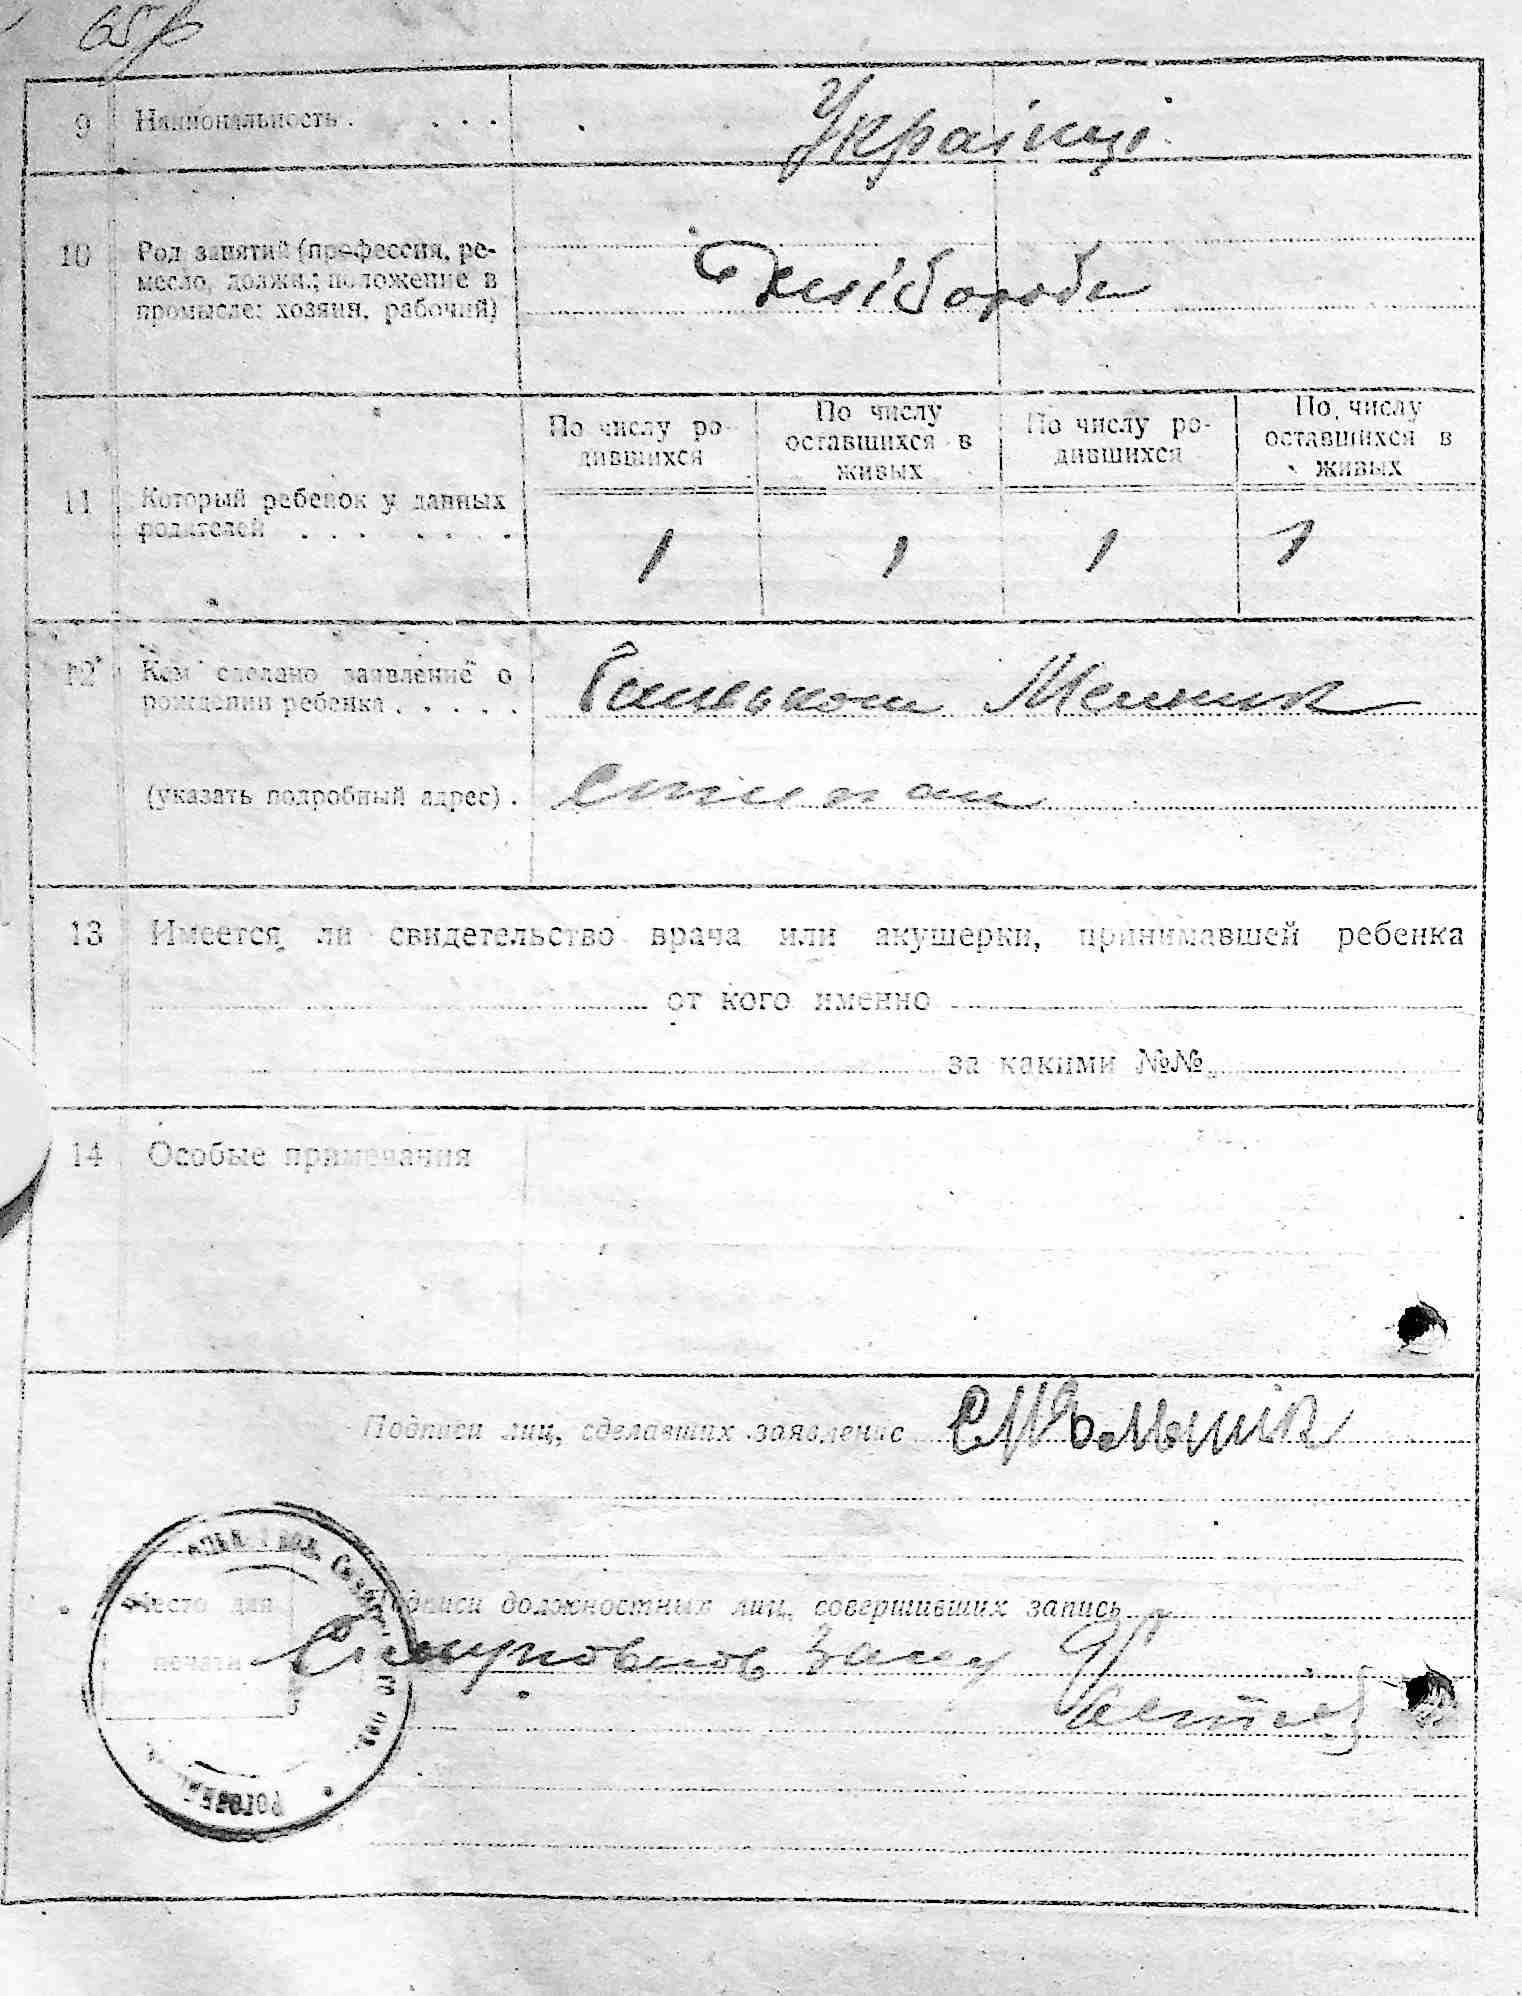 65
9 Национальность . . . . Українці
10 Род занятий (профессия, ре-
месло, должн.; положение в
промысле: хозяин, рабочий)
Хлібороби
По числу ро-
дившихся
По числу
оставшихся в
живых
По числу ро-
дившихся
По числу
оставшихся в
живых
11 Который ребенок у данных
родителей . . . . . . .
1 1 1 1
12 Кем сделано заявление о
рождении ребенка . . . . .
Батьком Мельник
(указать подробный адрес) . Степан
13 Имеется ли свидетельство врача или акушерки, принимавшей ребенка
от кого именно
за какими №№
14 Особые примечания
Подписи лиц, сделавших заявление С. Мельник
Место для
печати
Подписи должностных лиц, совершивших запись
Загсу